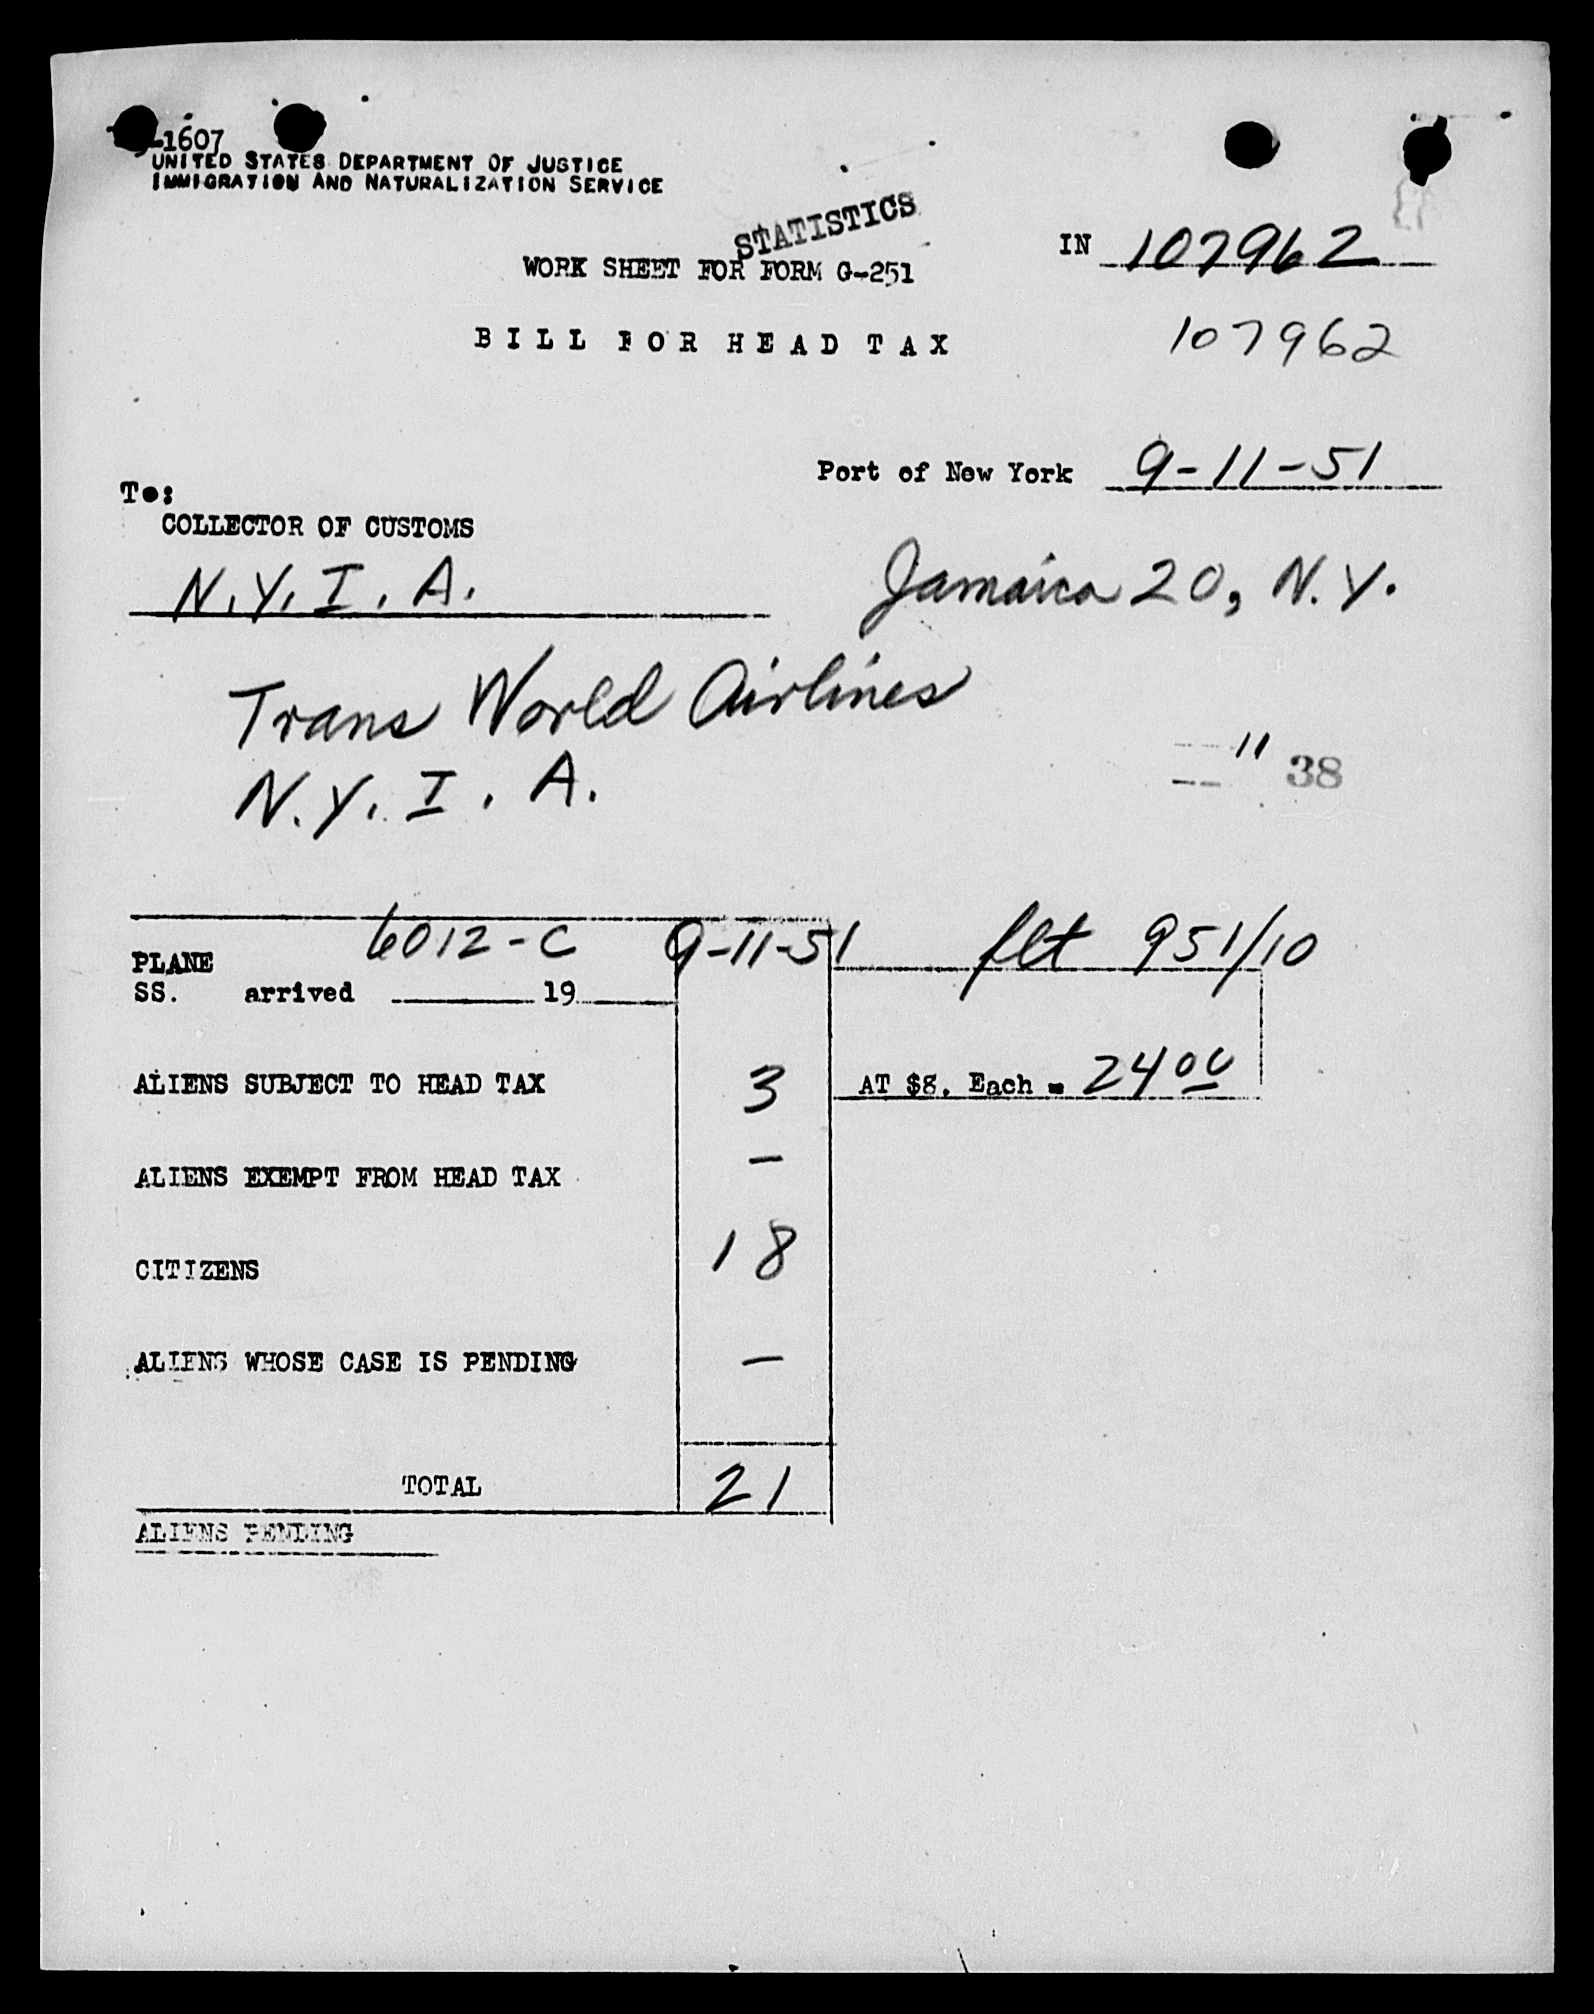 -1607
UNITED STATES DEPARTMENT OF JUSTICE
IMMIGRATION AND NATURALIZATION SERVICE
STATISTICS
WORK SHEET FOR FORM G-251
IN 107962
BILL FOR HEAD TAX
107962
Port of New York 9-11-51
To:
COLLECTOR OF CUSTOMS
N.Y.I.A.
Jamaica 20, N.Y.
Trans World Airlines
N.Y.I.A.
11 38
6012-C 9-11-51 flt 951/10
PLANE
SS. arrived 19
ALIENS SUBJECT TO HEAD TAX 3 AT $8. Each = 24 00
ALIENS EXEMPT FROM HEAD TAX –
CITIZENS 18
ALIENS WHOSE CASE IS PENDING –
TOTAL 21
ALIENS PENDING